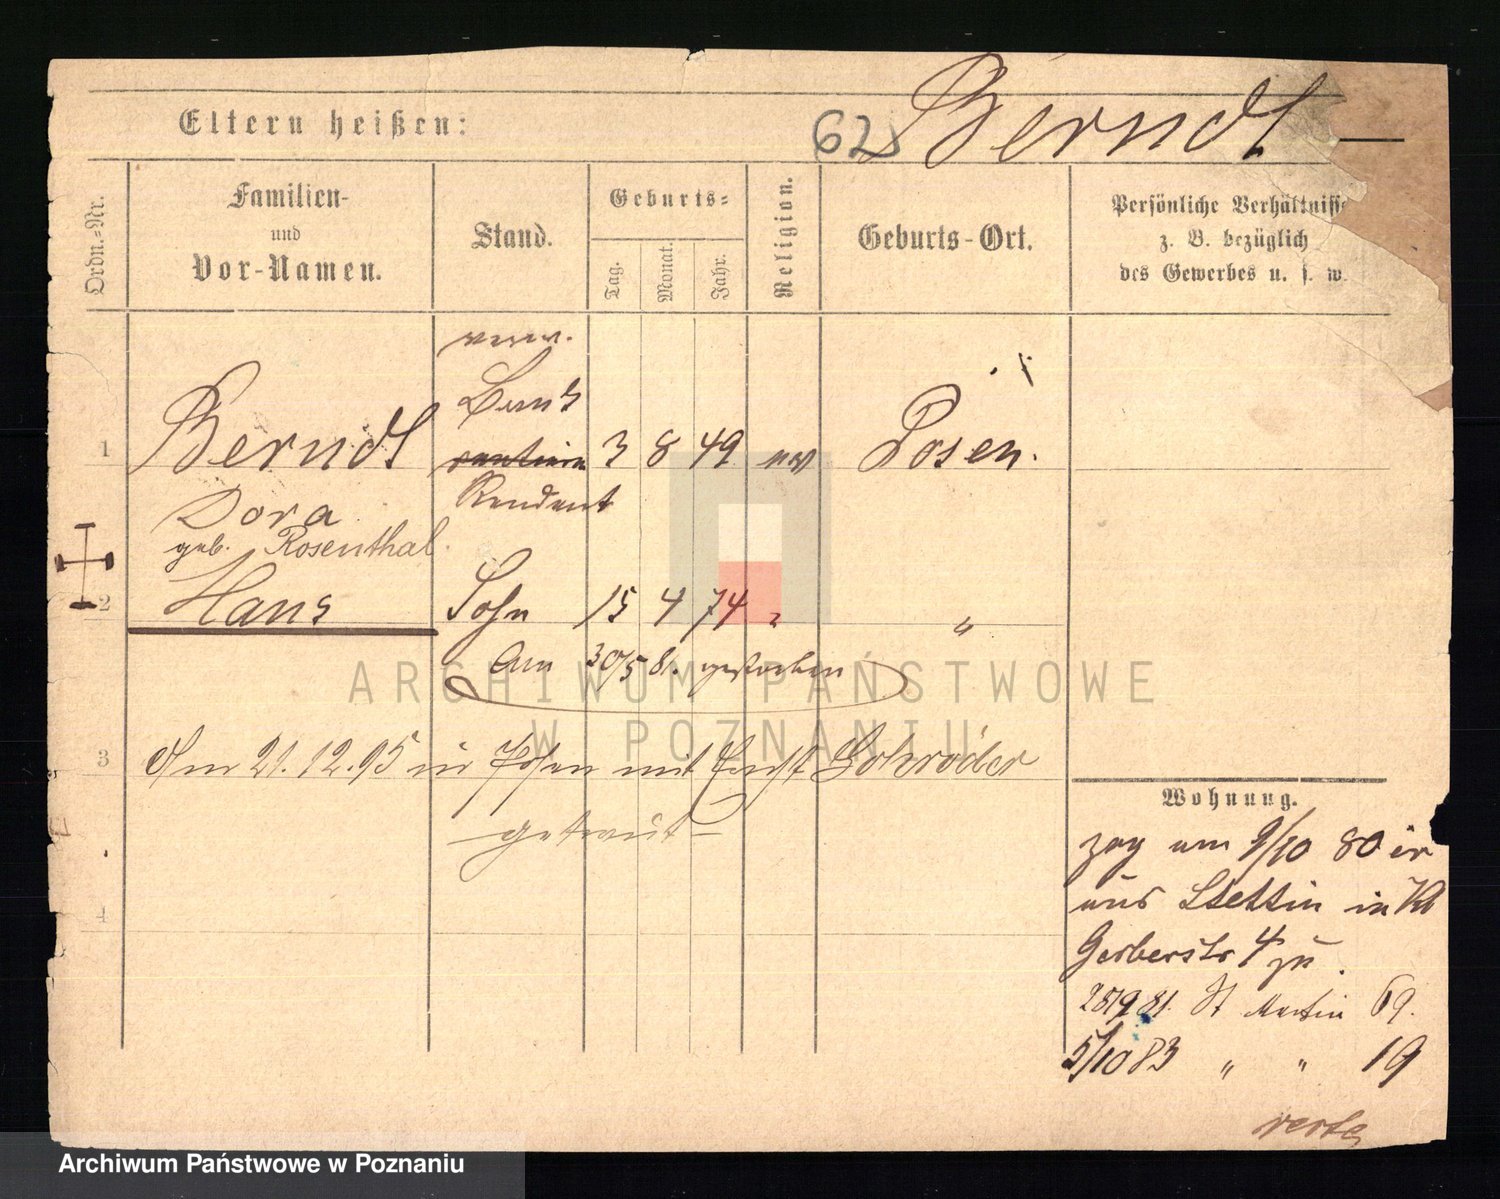 Eltern heißen:
62
Berndt
Ordn.-Nr.
Familien-
und
Vor-Namen.
Stand.
Geburts-
Tag.
Monat.
Jahr.
Religion.
Geburts-Ort.
Persönliche Verhältnisse
z. B. bezüglich
des Gewerbes u. s. w.
verw.
1 Berndt 3 8 49 ev Posen.
Rendant
Dora
geb. Rosenthal.
2 Hans Sohn 15 4 74 " "
Am 30/5 81. gestorben
3 Am 21.12.95 in Posen mit Ernst Schröder
getraut
4
Wohnung.
zog am 9/10 80
aus Stettin in Kl
Gerberstr 4 zu.
28/9 81. St Martin 69.
5/10 83 " " 19
verte
ARCHIWUM PAŃSTWOWE
W POZNANIU
Archiwum Państwowe w Poznaniu